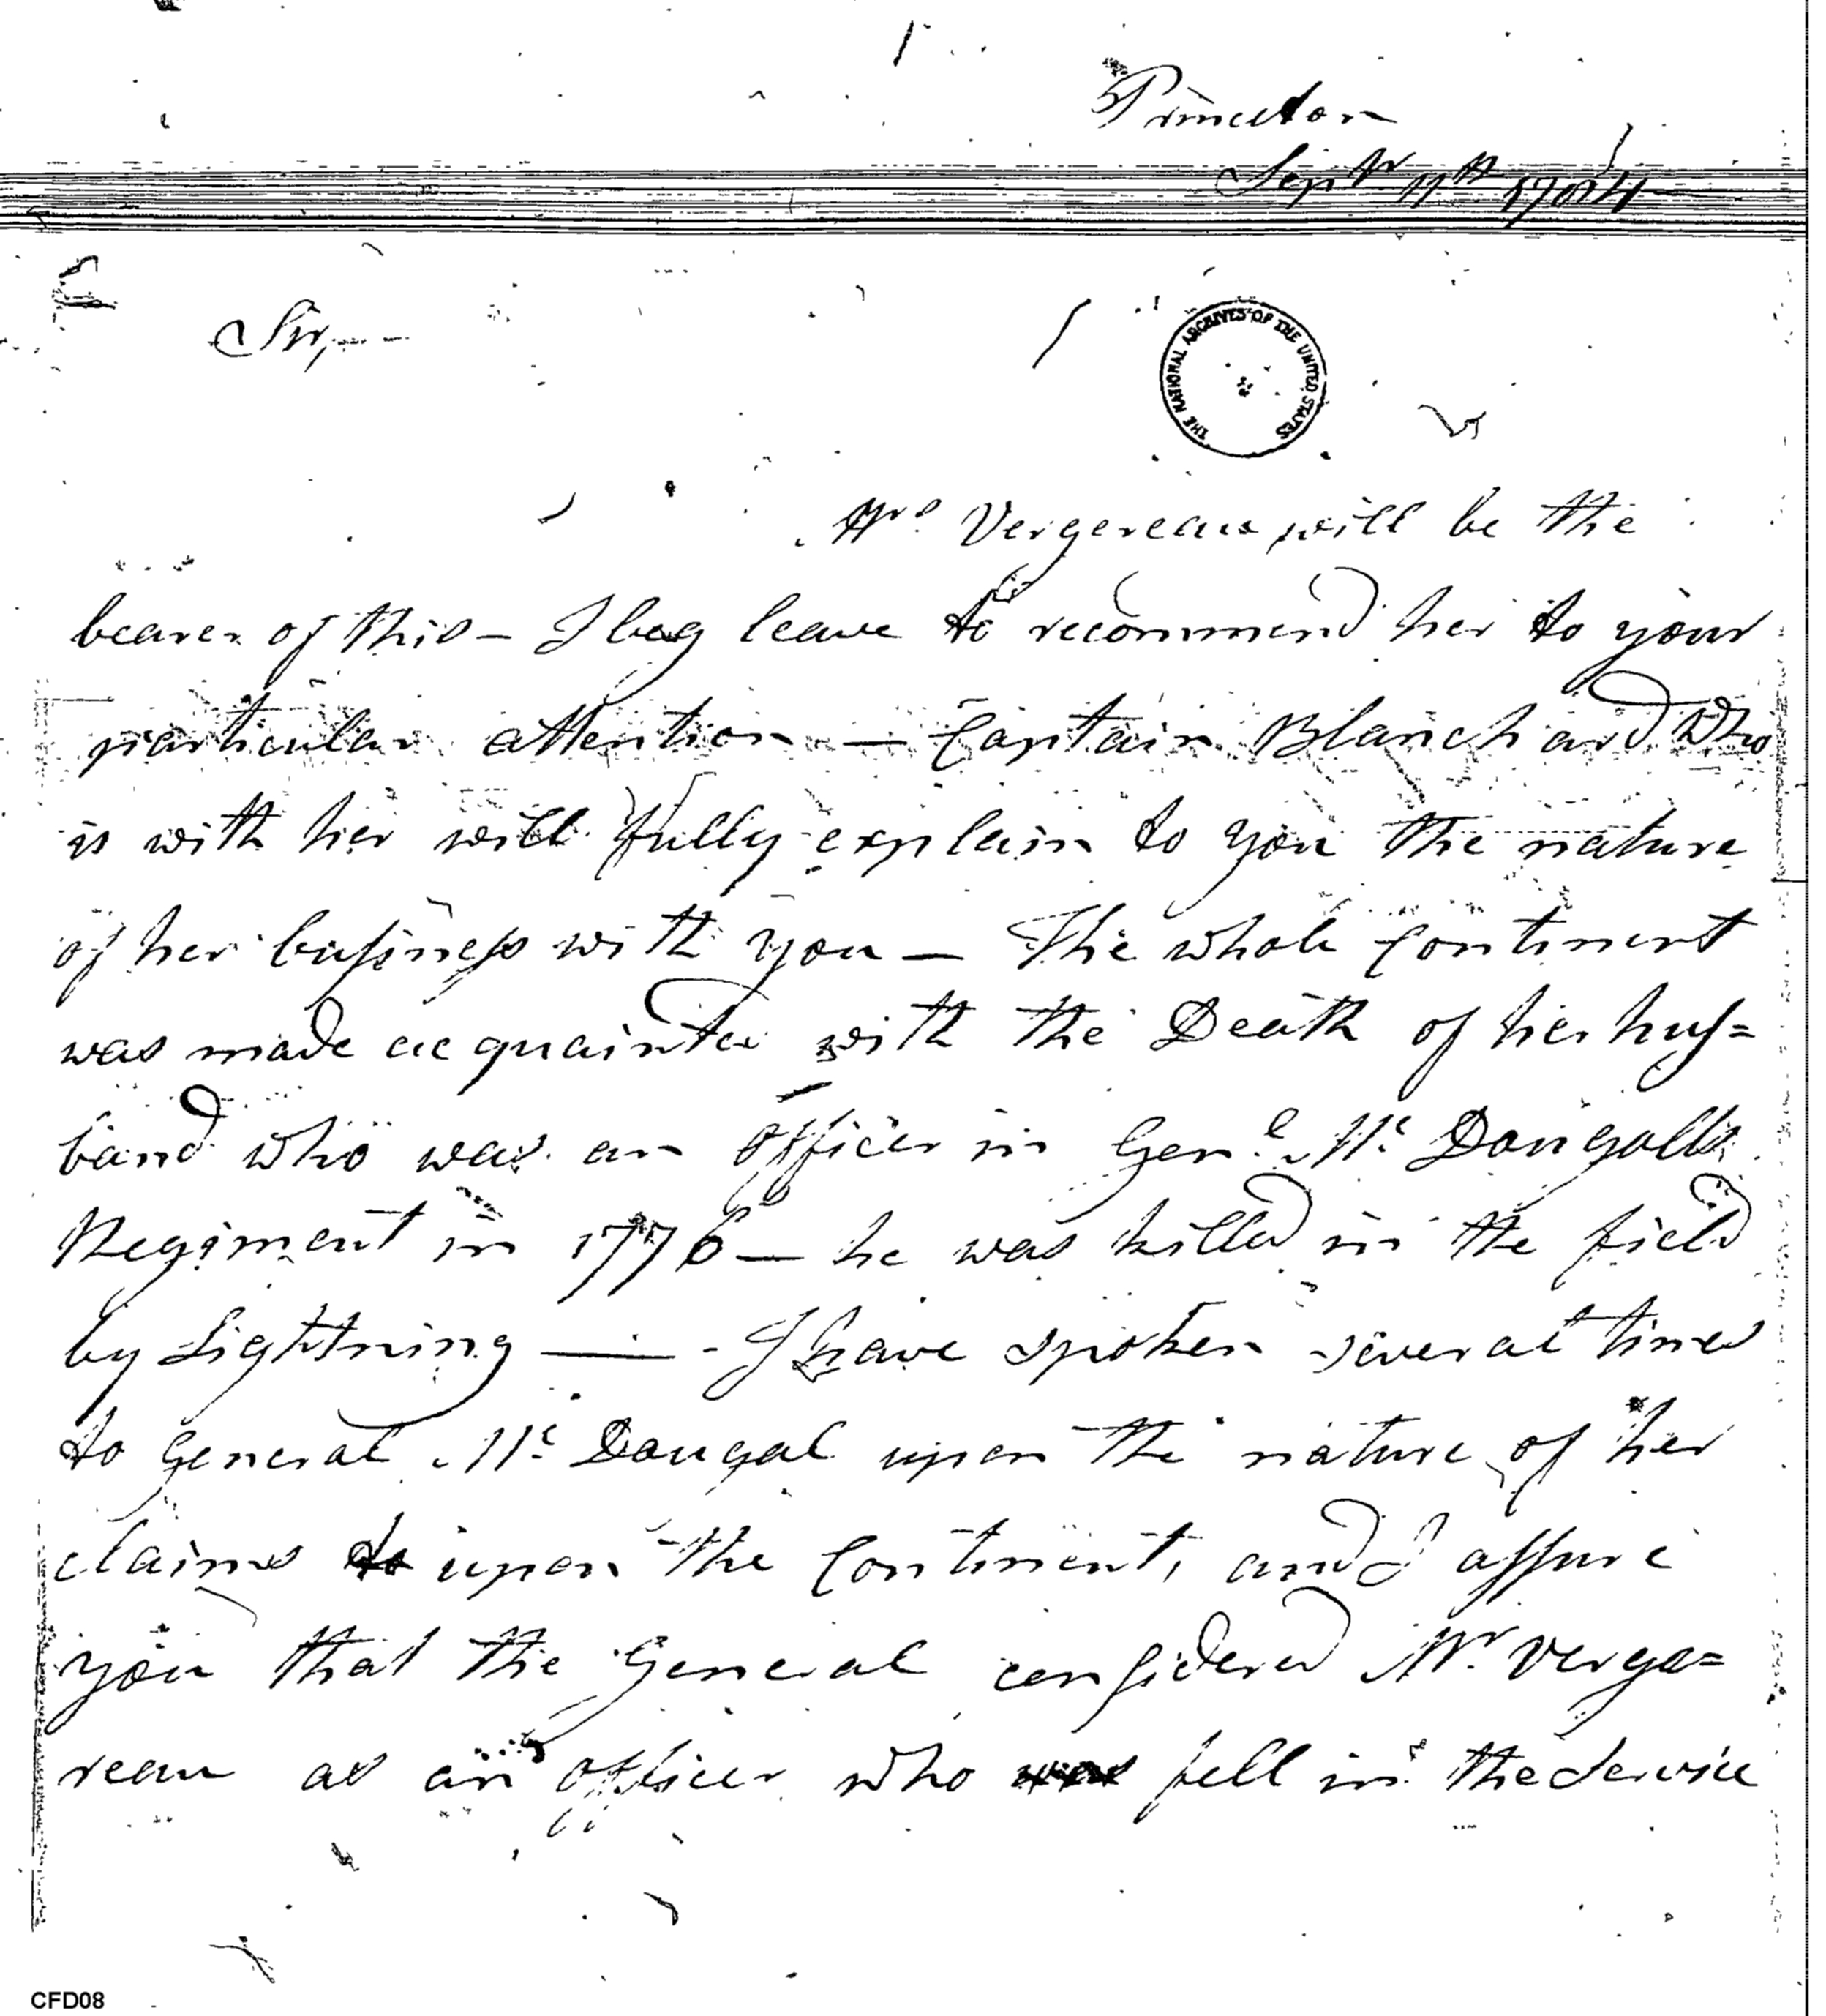 Princeton
Sepr 11th 1784
Sir,--
THE NATIONAL ARCHIVES OF THE UNITED STATES
Mrs Vergereau will be the
bearer of this — I beg leave to recommend her to your
particular attention — Captain Blanchard who
is with her will fully explain to you the nature
of her busineſs with you — The whole Continent
was made acquainted with the Death of her huſ=
band who was an officer in Genl. Mc Dougalls
Regiment in 1776 — he was killed in the field
by Lightning —— - I have spoken several times
to General Mc Dougal upon the nature of her
claims to upon the Continent, and I aſsure
you that the General conſidered Mr Verge=
reau as an officer who was fell in the Service
CFD08